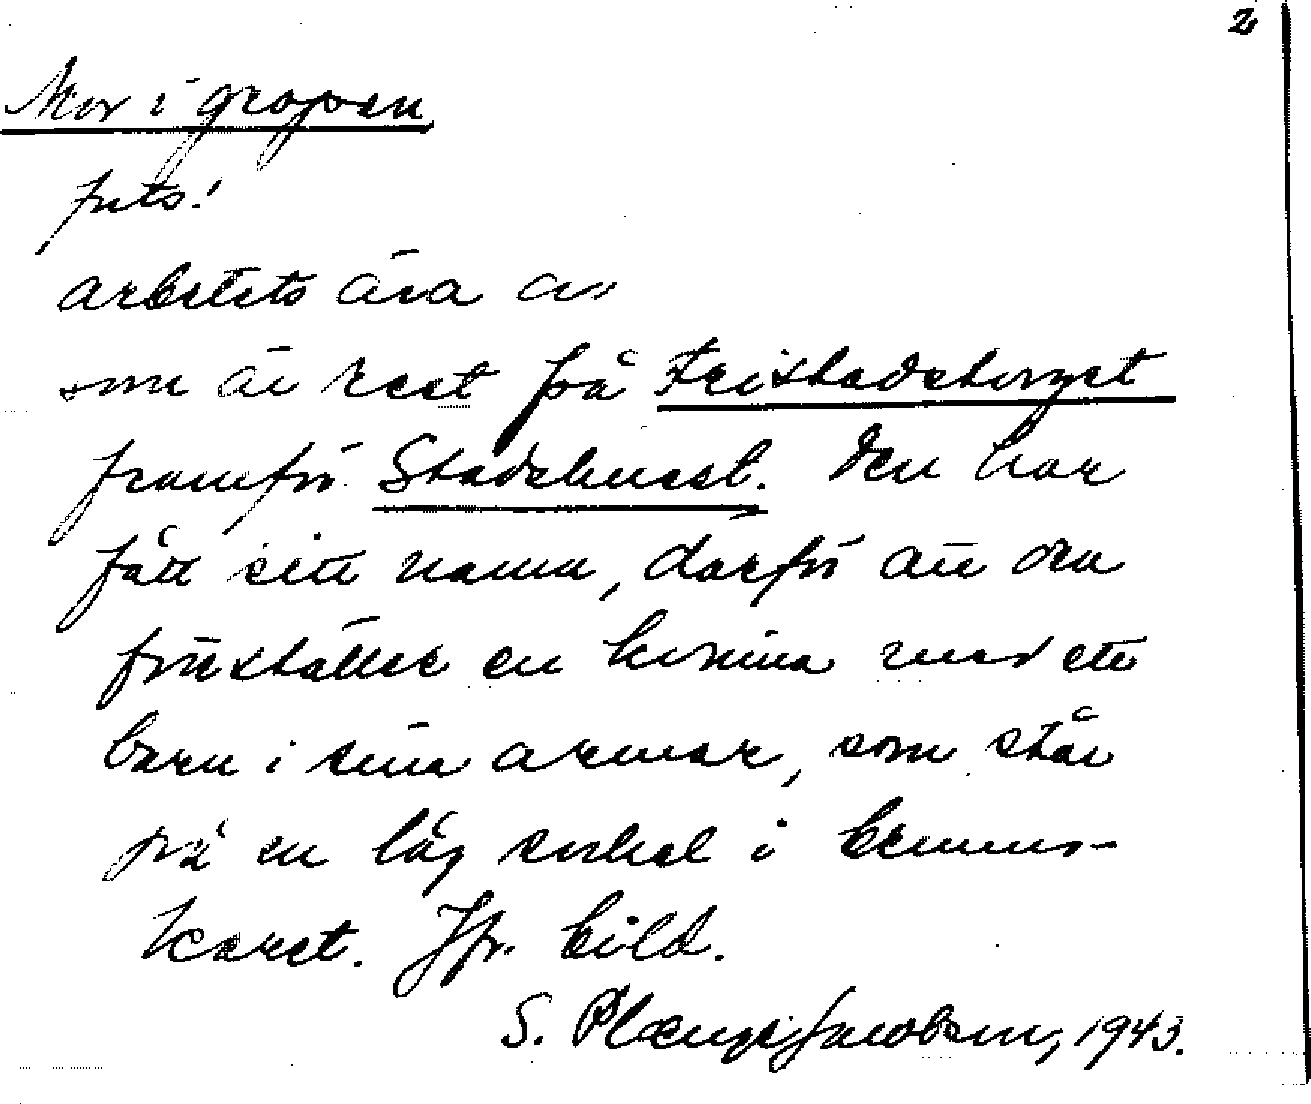 2
Mor i gropen
puts!
arbetets ära av
som är rest på Fristadstorget
framför Stadshuset. Den har
fått sitt namn, därför att den
föreställer en kvinna med ett
barn i sina armar, som står
på en låg sockel i brunns-
karet. Jfr. bild.
S. Plænge Jacobson, 1943.